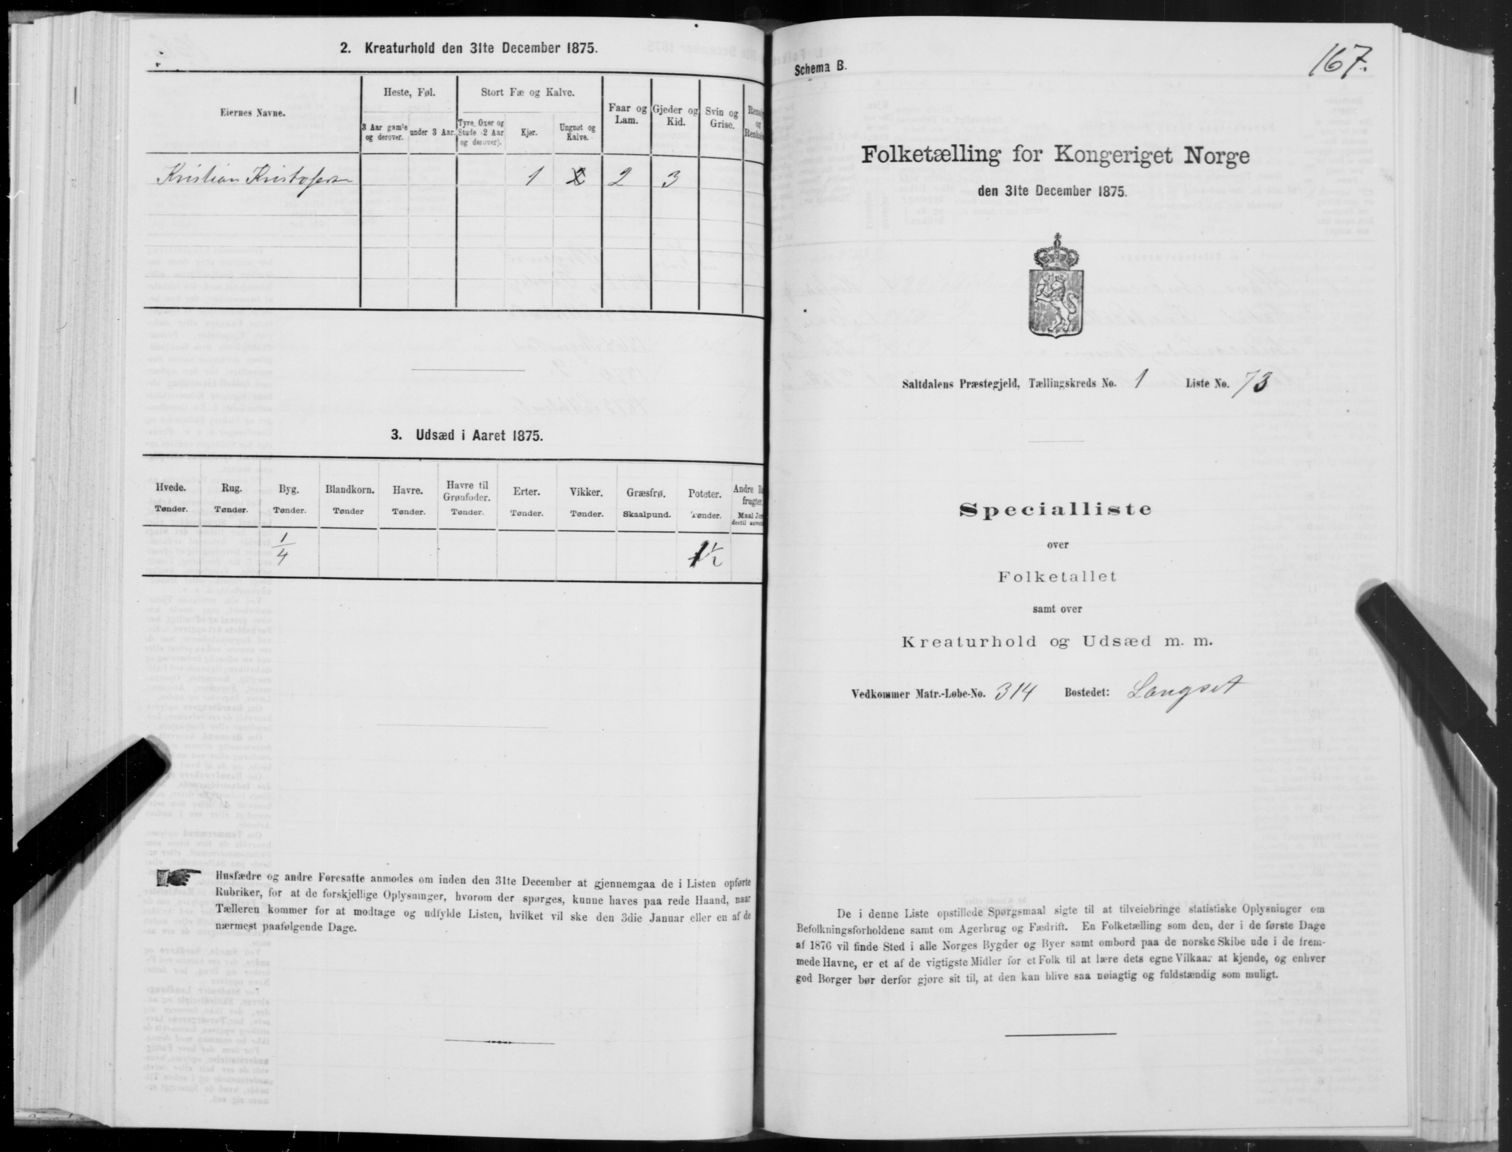 2. Kreaturhold den 31te December 1875.
Eiernes Navne.
Heste, Føl.
Stort Fæ og Kalve.
Faar og Lam.
Gjeder og Kid.
Svin og Grise.
3 Aar gamle og derover.
under 3 Aar.
Tyre, Oxer og Stude (2 Aar og derover).
Kjør.
Ungnøt og Kalve.
Kristian Kristofersen 1 2 3
3. Udsæd i Aaret 1875.
Hvede. Rug. Byg. Blandkorn. Havre. Havre til Grønfoder. Erter. Vikker. Græsfrø. Poteter.
Tønder. Tønder. Tønder. Tønder Tønder. Tønder. Tønder. Tønder. Skaalpund. Tønder.
1/4 1 1/2
Husfædre og andre Foresatte anmodes om inden den 31te December at gjennemgaa de i Listen opførte
Rubriker, for at de forskjellige Oplysninger, hvorom der spørges, kunne haves paa rede Haand, naar
Tælleren kommer for at modtage og udfylde Listen, hvilket vil ske den 3die Januar eller en af de
nærmest paafølgende Dage.
167.
Schema B.
Folketælling for Kongeriget Norge
den 31te December 1875.
Saltdalens Præstegjeld, Tællingskreds No. 1 Liste No. 73
Specialliste
over
Folketallet
samt over
Kreaturhold og Udsæd m. m.
Vedkommer Matr.-Løbe-No. 314 Bostedet: Langset
De i denne Liste opstillede Spørgsmaal sigte til at tilveiebringe statistiske Oplysninger om
Befolkningsforholdene samt om Agerbrug og Fædrift. En Folketælling som den, der i de første Dage
af 1876 vil finde Sted i alle Norges Bygder og Byer samt ombord paa de norske Skibe ude i de frem-
mede Havne, er et af de vigtigste Midler for et Folk til at lære dets egne Vilkaar at kjende, og enhver
god Borger bør derfor gjøre sit til, at den kan blive saa nøiagtig og fuldstændig som muligt.